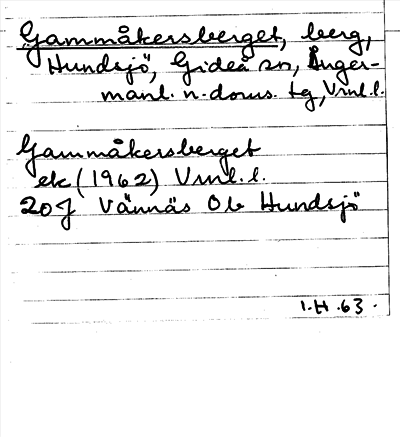 Gammåkersberget, berg,
Hundsjö, Gideå sn, Ånger-
manl. n. doms. tg, Vrml. l.
Gammåkersberget
ek (1962) Vml. l.
20 J Vännäs Ob Hundsjö
1.H.63.